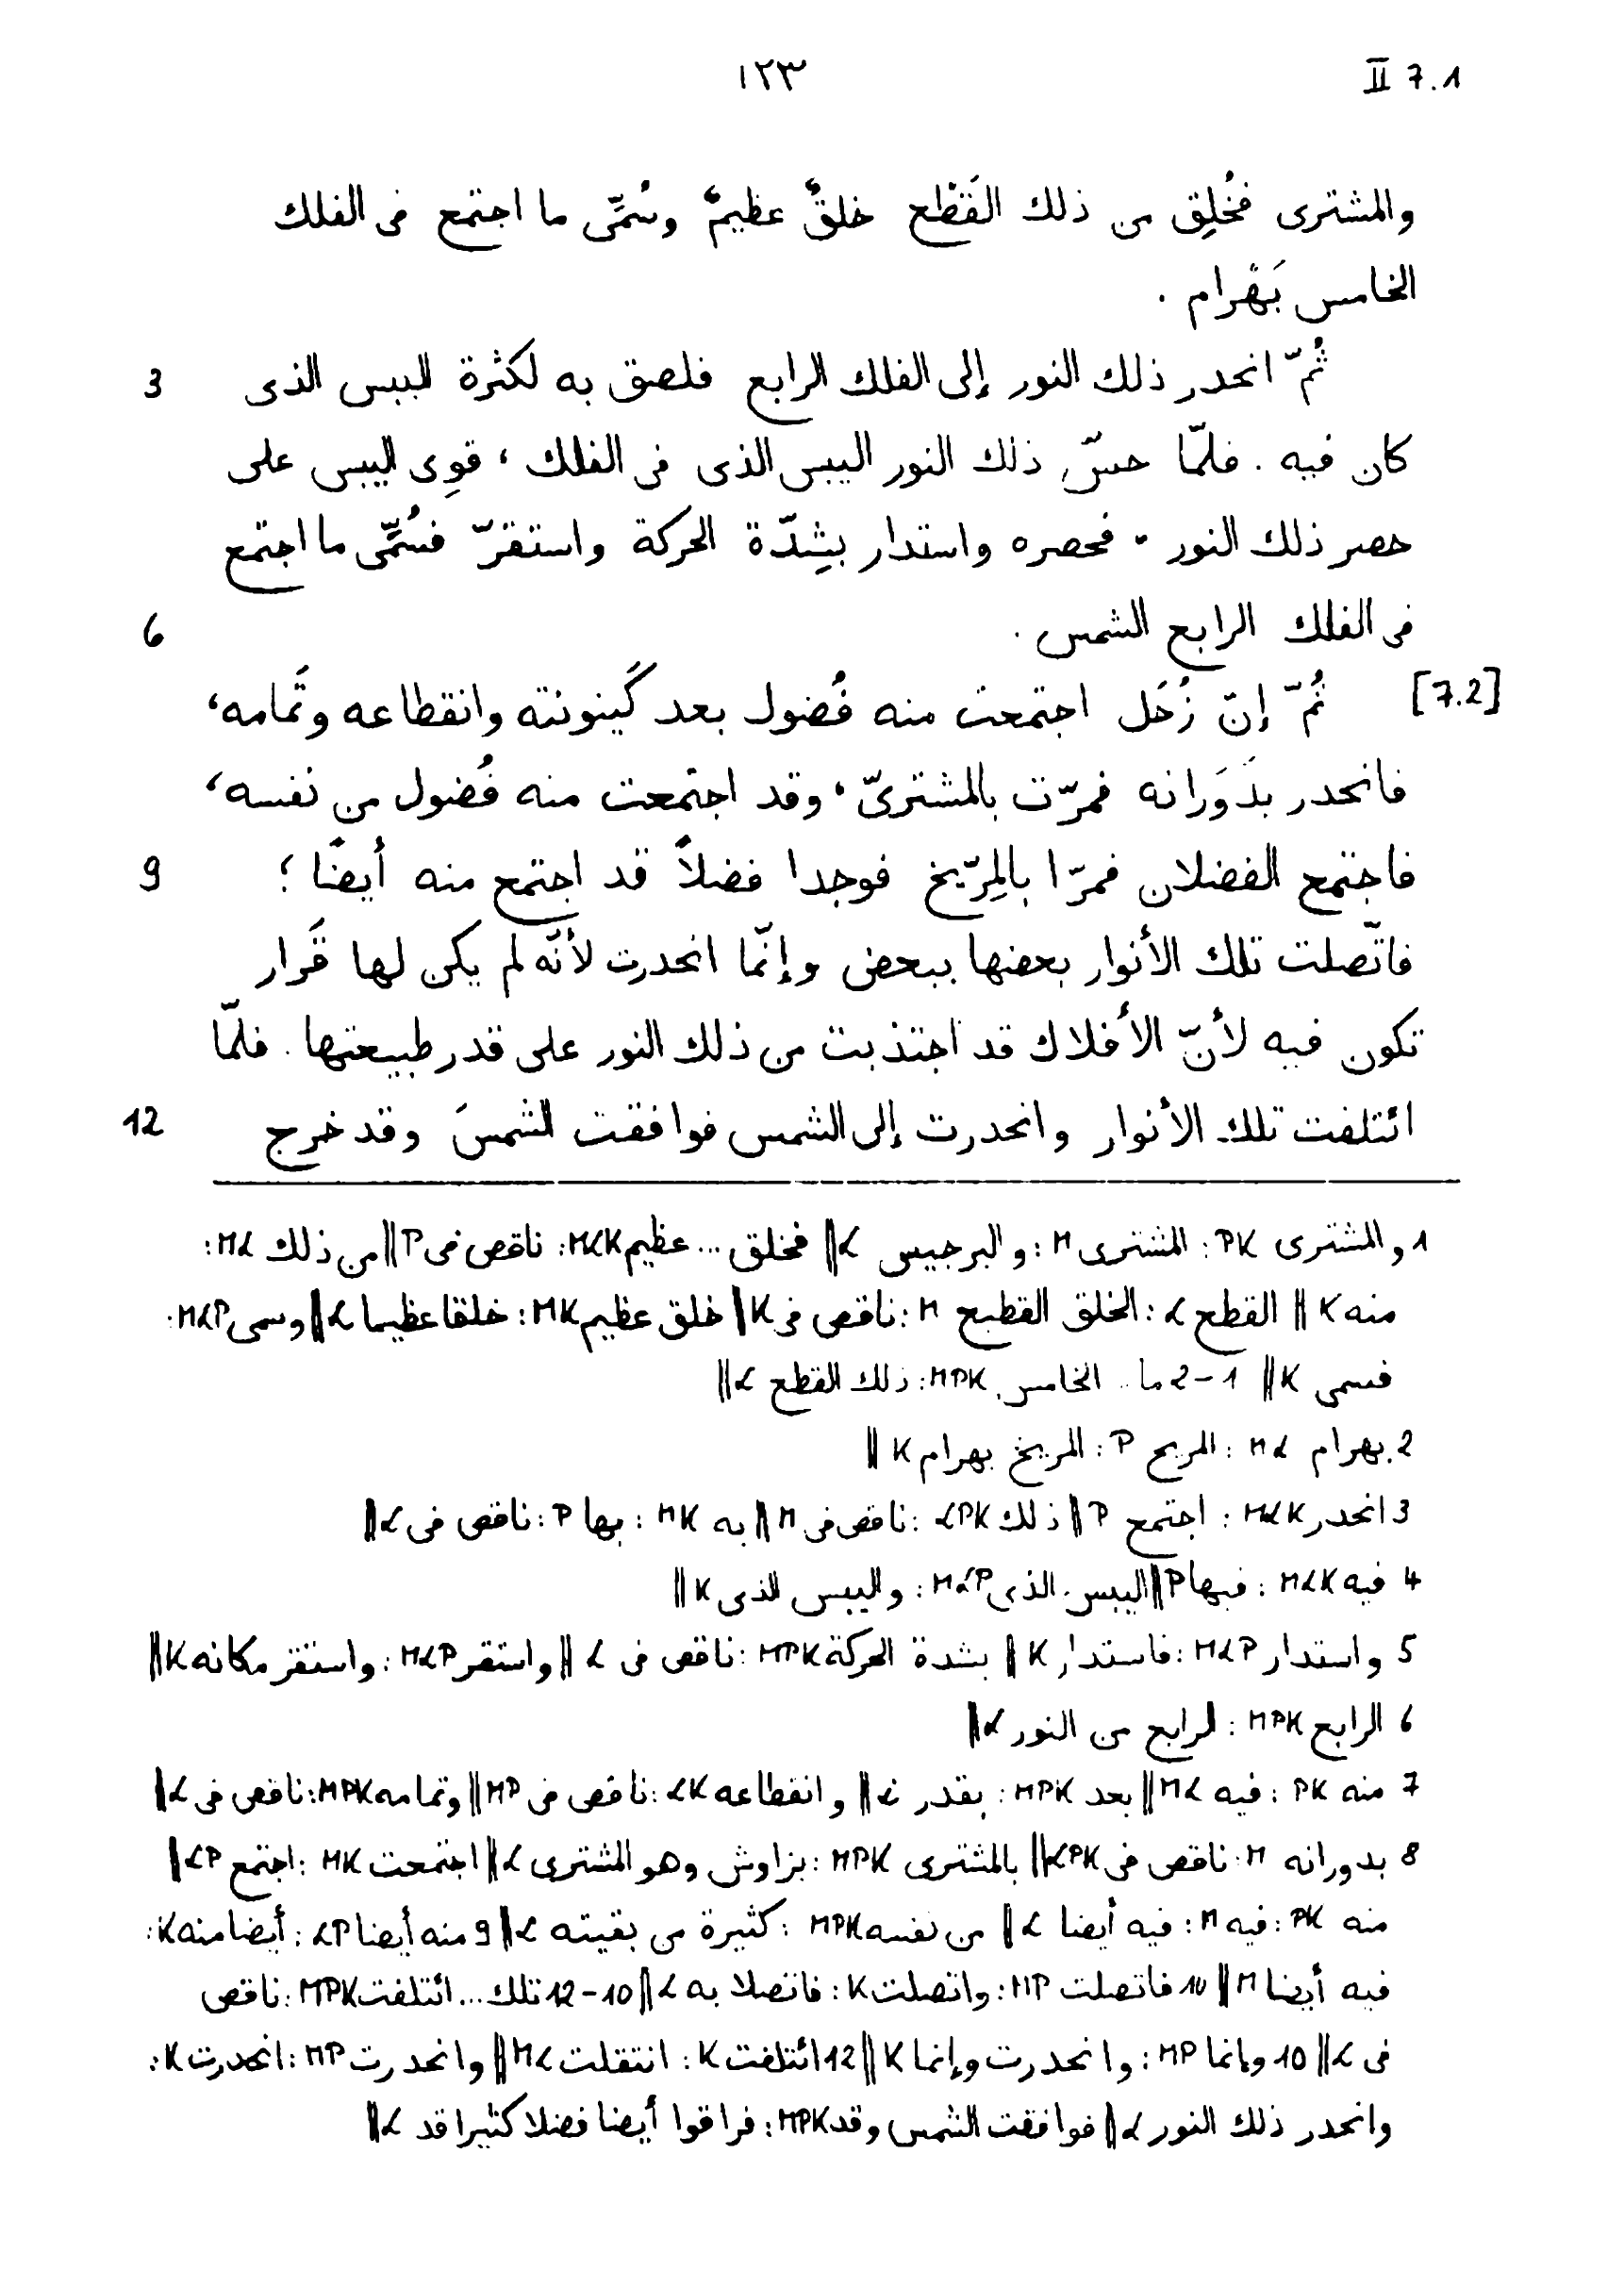 ١٢٣
II 7.1
والمشترى فخُلِق من ذلك القَطْع خلقٌ عظيمٌ وسُمِّى ما اجتمع فى الفلك
الخامس بَهْرام .
3 ثُمّ انحدر ذلك النور إلى الفلك الرابع فلصق به لكثرة اليبس الذى
كان فيه . فلمّا حسّ ذلك النور اليبس الذى فى الفلك ، قوِى اليبس على
حصر ذلك النور . فحصره واستدار بشِدّة الحركة واستقرّ فسُمِّى ما اجتمع
6 فى الفلك الرابع الشمس .
[7.2] ثُمّ إنّ زُحَل اجتمعت منه فُضول بعد كَينونته وانقطاعه وتَمامه،
فانحدر بدَوَرانه فمرّت بالمشترىّ ، وقد اجتمعت منه فُضول من نفسه،
9 فاجتمع الفضلان فمرّا بالمِرّيخ فوجدا فضلاً قد اجتمع منه أيضًا ؛
فاتّصلت تلك الأنوار بعضها ببعض وإنّما انحدرت لأنّه لم يكن لها قَرار
تكون فيه لأنّ الأفلاك قد اجتذبت من ذلك النور على قدر طبيعتها . فلمّا
12 ائتلفت تلك الأنوار وانحدرت إلى الشمس فوافقت الشمسَ وقد خرج
1 والمشترى PK : المشترى M : والبرجيس L || فخلق ... عظيم MLK : ناقص فى P || من ذلك ML :
منه K || القطع L : الخلق القطيع M : ناقص فى K || خلق عظيم MK : خلقا عظيما L || وسمى MLP :
فسمى K || 1-2 ما .. الخامس MPK : ذلك القطع L ||
2 بهرام ML : المريح P : المريخ بهرام K ||
3 انحدر MLK : اجتمع P || ذلك LPK : ناقص فى M || به MK : بها P : ناقص فى L ||
4 فيه MLK : فيها P || اليبس الذى MLP : واليبس الذى K ||
5 واستدار MLP : فاستدار K || بشدة الحركة MPK : ناقص فى L || واستقر MLP : واستقر مكانه K ||
6 الرابع MPK : الرابع من النور L ||
7 منه PK : فيه ML || بعد MPK : بقدر L || وانقطاعه LK : ناقص فى MP || وتمامه MPK : ناقص فى L ||
8 بدورانه M : ناقص فى LPK || بالمشترى MPK : بزاوش وهو المشترى L || اجتمعت MK : اجتمع LP ||
منه PK : فيه M : فيه أيضا L || من نفسه MPK : كثيرة من بقيته L || 9 منه أيضا LP : أيضا منه K :
فيه أيضا M || 10 فاتصلت MP : واتصلت K : فاتصلا به L || 10-12 تلك ... ائتلفت MPK : ناقص
فى L || 10 وإنما MP : وانحدرت وإنما K || 12 ائتلفت K : انتقلت ML || وانحدرت MP : انحدرت K :
وانحدر ذلك النور L || فوافقت الشمس وقد MPK : فراقوا أيضا فضلا كثيرا قد L ||